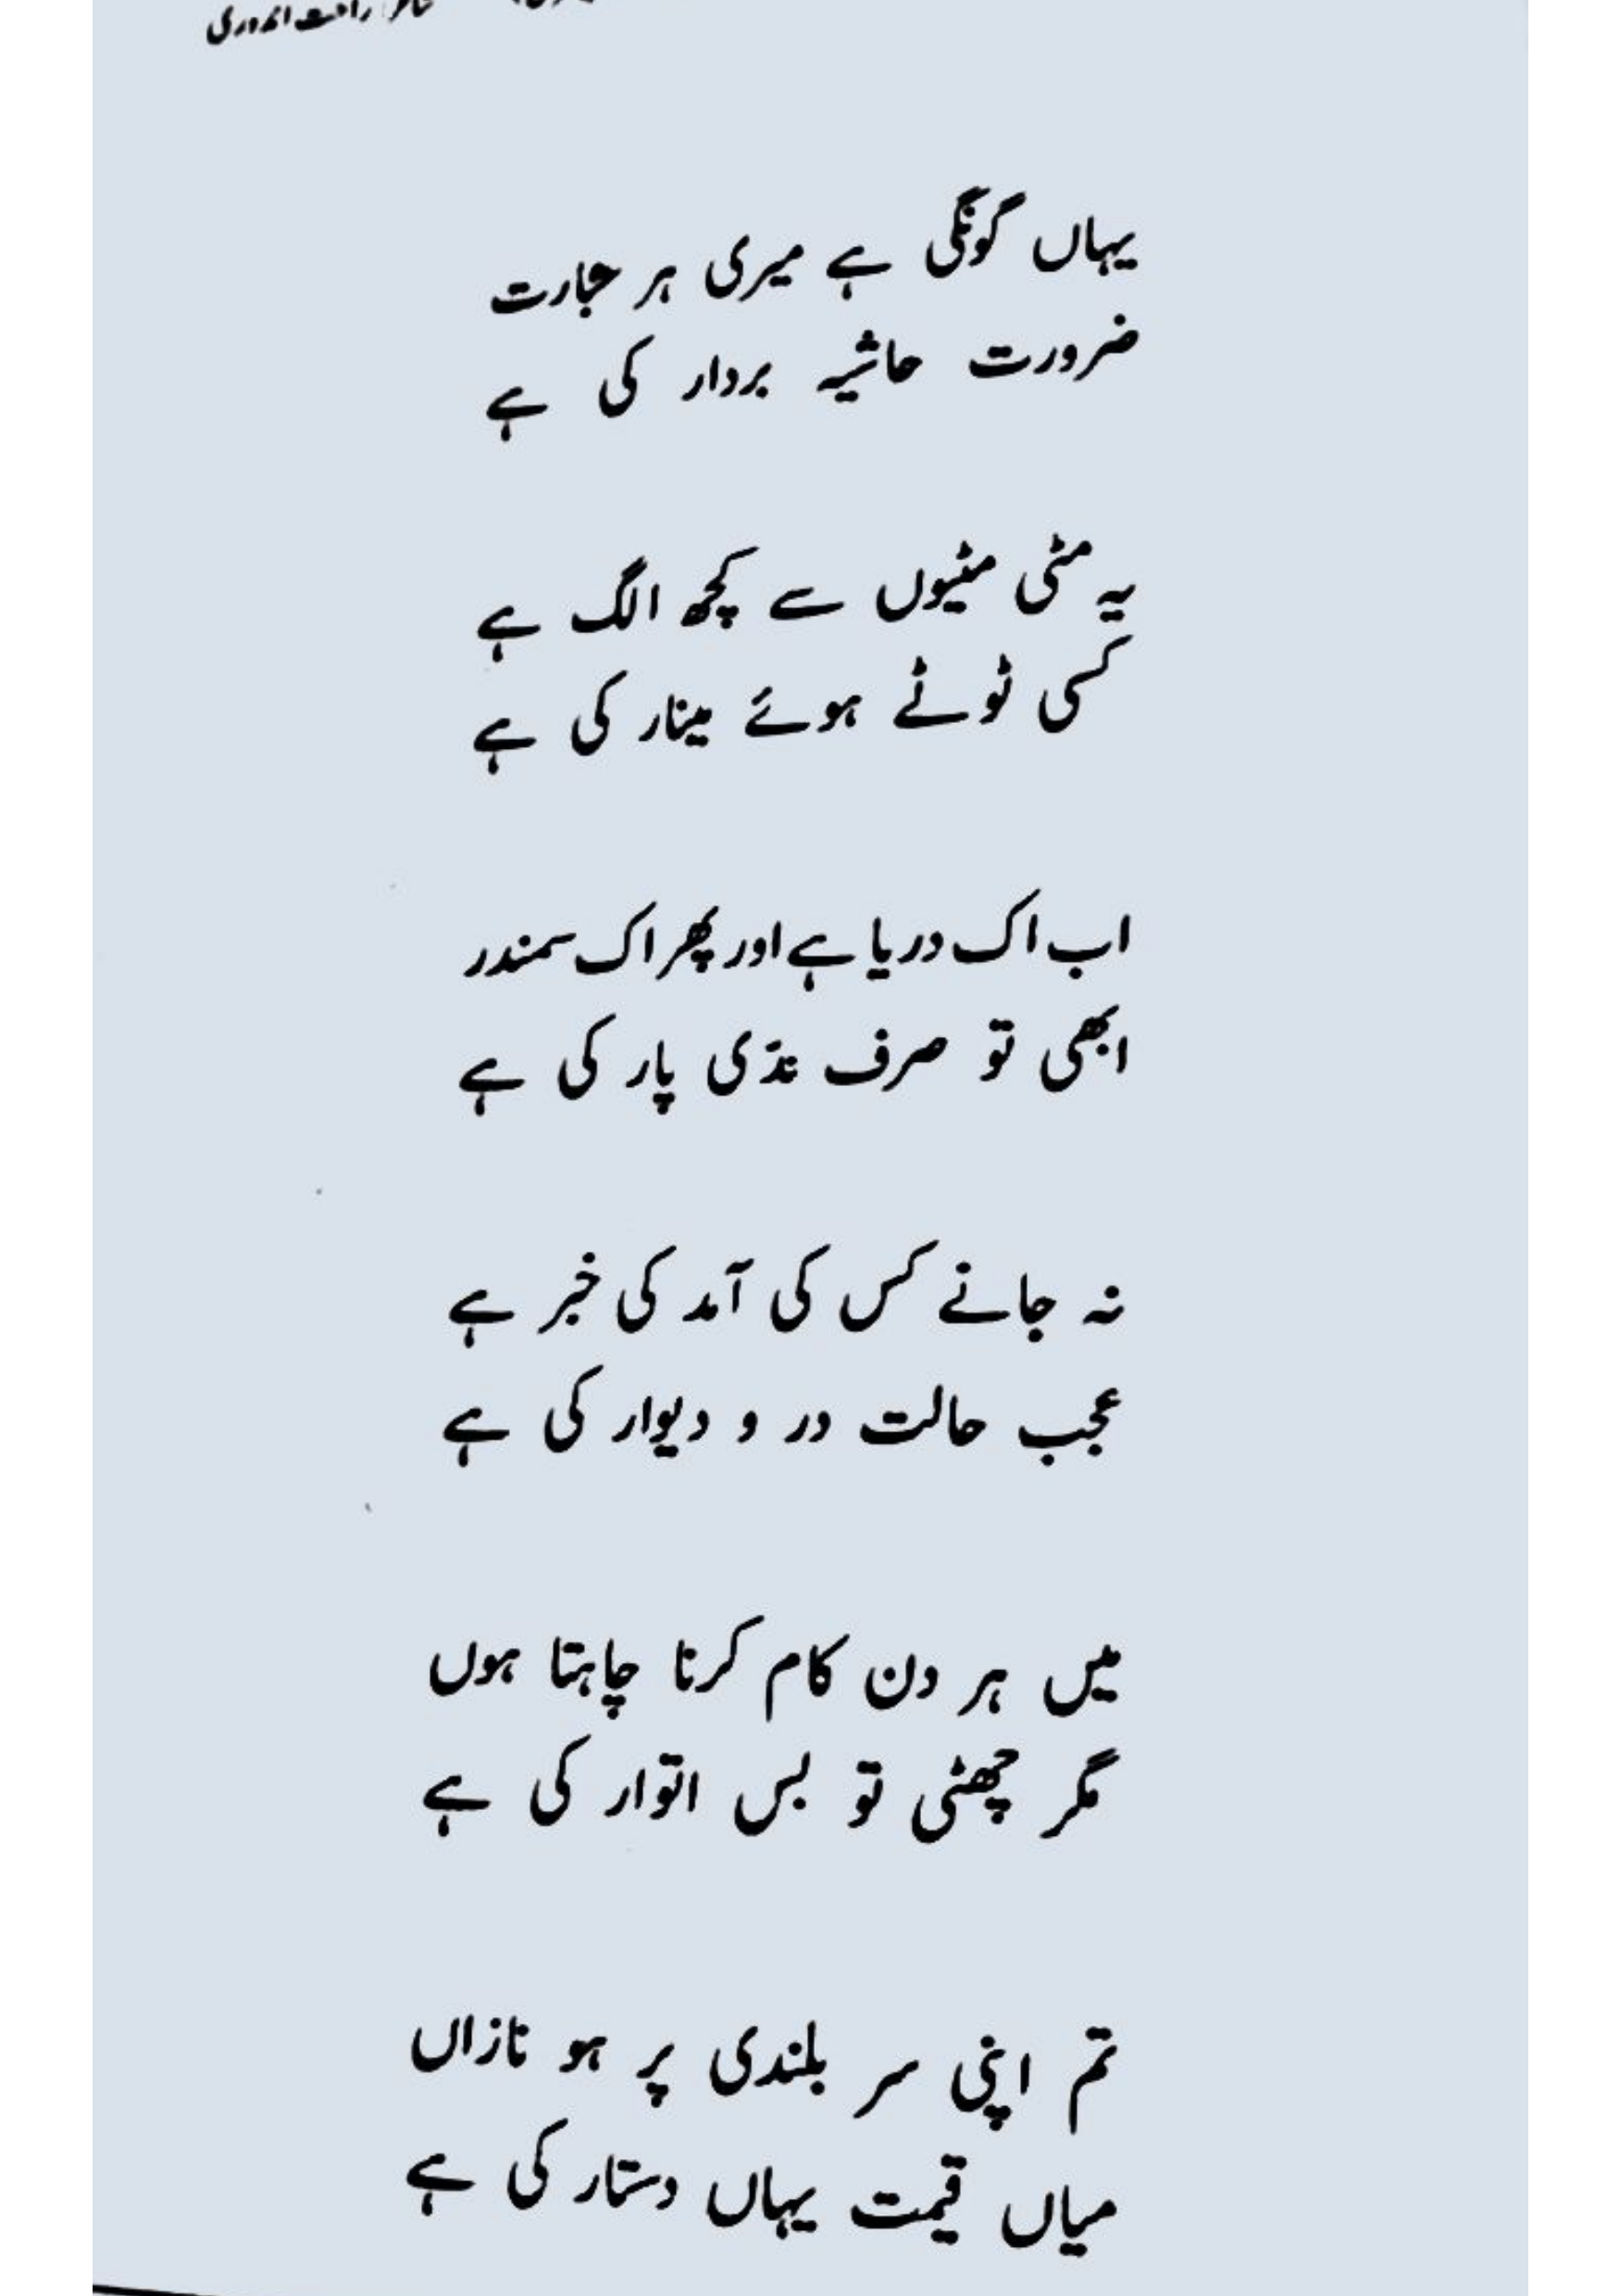 راحت اندوری
یہاں گونگی ہے میری ہر عبارت
ضرورت حاشیہ بردار کی ہے
یہ مٹی مٹیوں سے کچھ الگ ہے
کسی ٹوٹے ہوئے مینار کی ہے
اب اک دریا ہے اور پھر اک سمندر
ابھی تو صرف ندّی پار کی ہے
نہ جانے کس کی آمد کی خبر ہے
عجب حالت در و دیوار کی ہے
میں ہر دن کام کرنا چاہتا ہوں
مگر چھٹی تو بس اتوار کی ہے
تم اپنی سر بلندی پر ہو نازاں
میاں قیمت یہاں دستار کی ہے